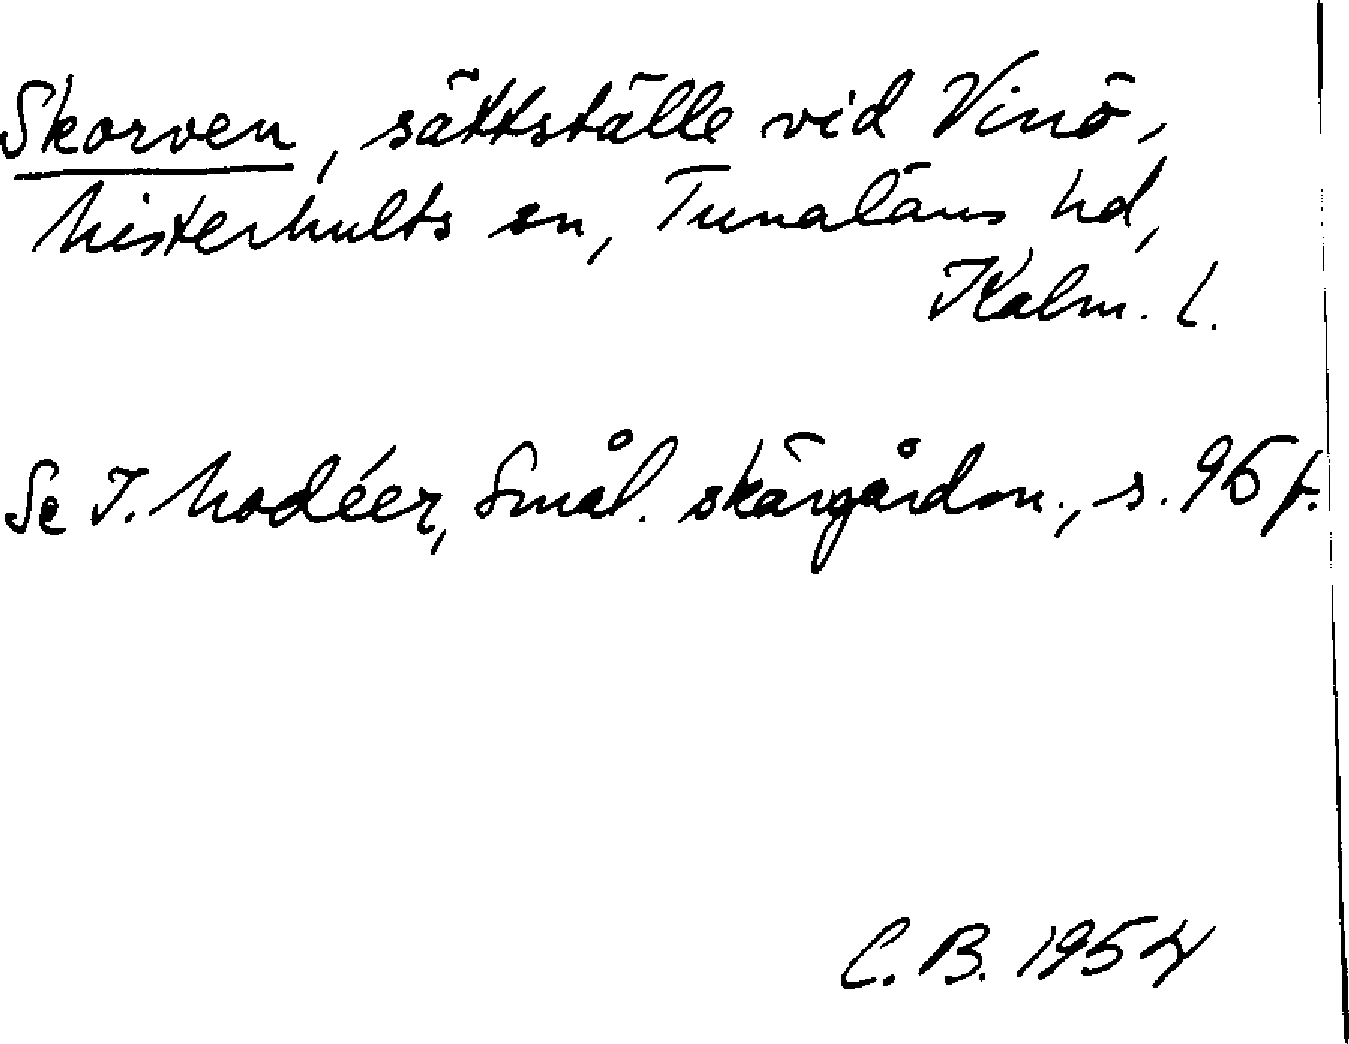 Skorven, sättställe vid Vinö,
Misterhults sn, Tunaläns hd,
Kalm. l.
Se I. Modéer, Smål. skärgårdsn., s. 95 f.
C. B. 1954